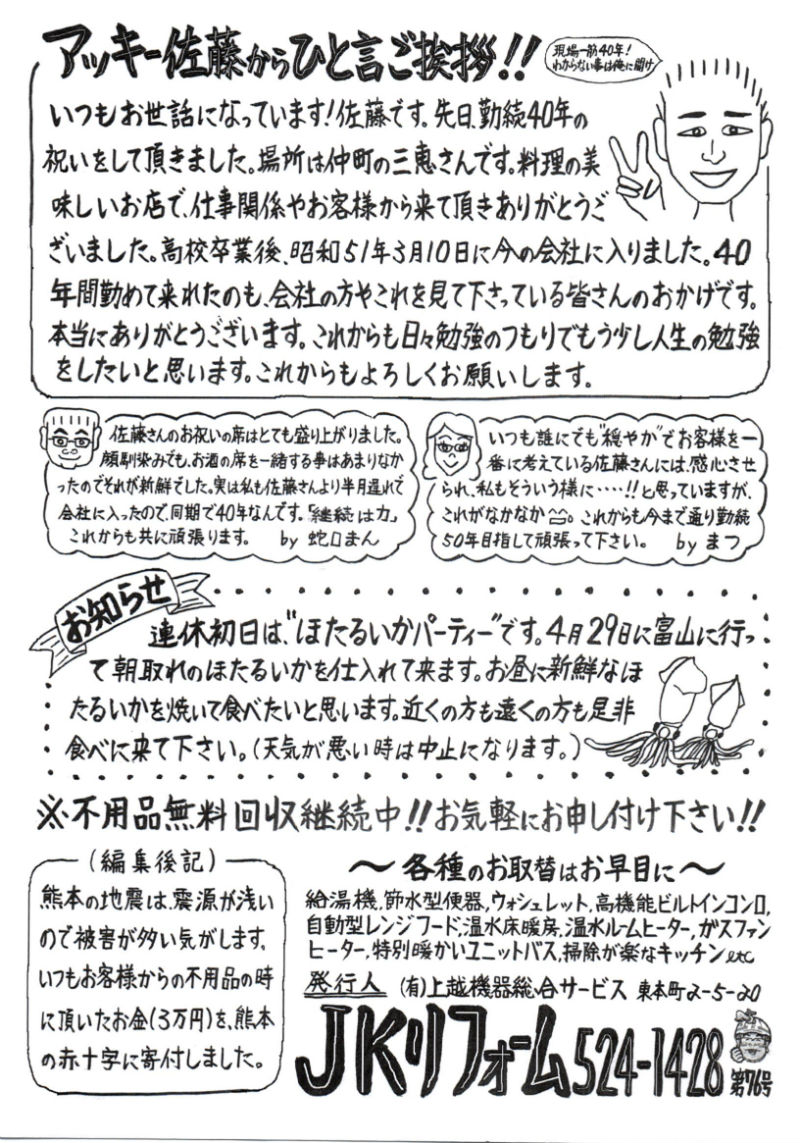 アッキー佐藤からひと言ご挨拶!!
現場一筋40年!
わからない事は俺に聞け
いつもお世話になっています!佐藤です。先日、勤続40年の
祝いをして頂きました。場所は仲町の三恵さんです。料理の美
味しいお店で、仕事関係やお客様から来て頂きありがとうご
ざいました。高校卒業後、昭和51年3月10日に今の会社に入りました。40
年間勤めて来れたのも、会社の方やこれを見て下さっている皆さんのおかげです。
本当にありがとうございます。これからも日々勉強のつもりでもう少し人生の勉強
をしたいと思います。これからもよろしくお願いします。
佐藤さんのお祝いの席はとても盛り上がりました。
顔馴染みでも、お酒の席を一緒する事はあまりなか
ったのでそれが新鮮でした。実は私も佐藤さんより半月遅れで
会社に入ったので、同期で40年なんです。「継続は力」
これからも共に頑張ります。 by 蛇口まん
いつも誰にでも"穏やか"でお客様を一
番に考えている佐藤さんには、感心させ
られ、私もそういう様に・・・・!!と思っていますが、
これがなかなか。これからも今まで通り勤続
50年目指して頑張って下さい。 by まつ
お知らせ
連休初日は、"ほたるいかパーティー"です。4月29日に富山に行っ
て朝取れのほたるいかを仕入れて来ます。お昼に新鮮なほ
たるいかを焼いて食べたいと思います。近くの方も遠くの方も是非
食べに来て下さい。(天気が悪い時は中止になります。)
※不用品無料回収継続中!!お気軽にお申し付け下さい!!
(編集後記)
熊本の地震は、震源が浅い
ので被害が多い気がします。
いつもお客様からの不用品の時
に頂いたお金(3万円)を、熊本
の赤十字に寄付しました。
〜各種のお取替はお早目に〜
給湯機,節水型便器,ウォシュレット,高機能ビルトインコンロ,
自動型レンジフード,温水床暖房,温水ルームヒーター,ガスファン
ヒーター,特別暖かいユニットバス,掃除が楽なキッチンetc
発行人 (有)上越機器総合サービス 東本町2-5-20
JKリフォーム524-1428 第76号